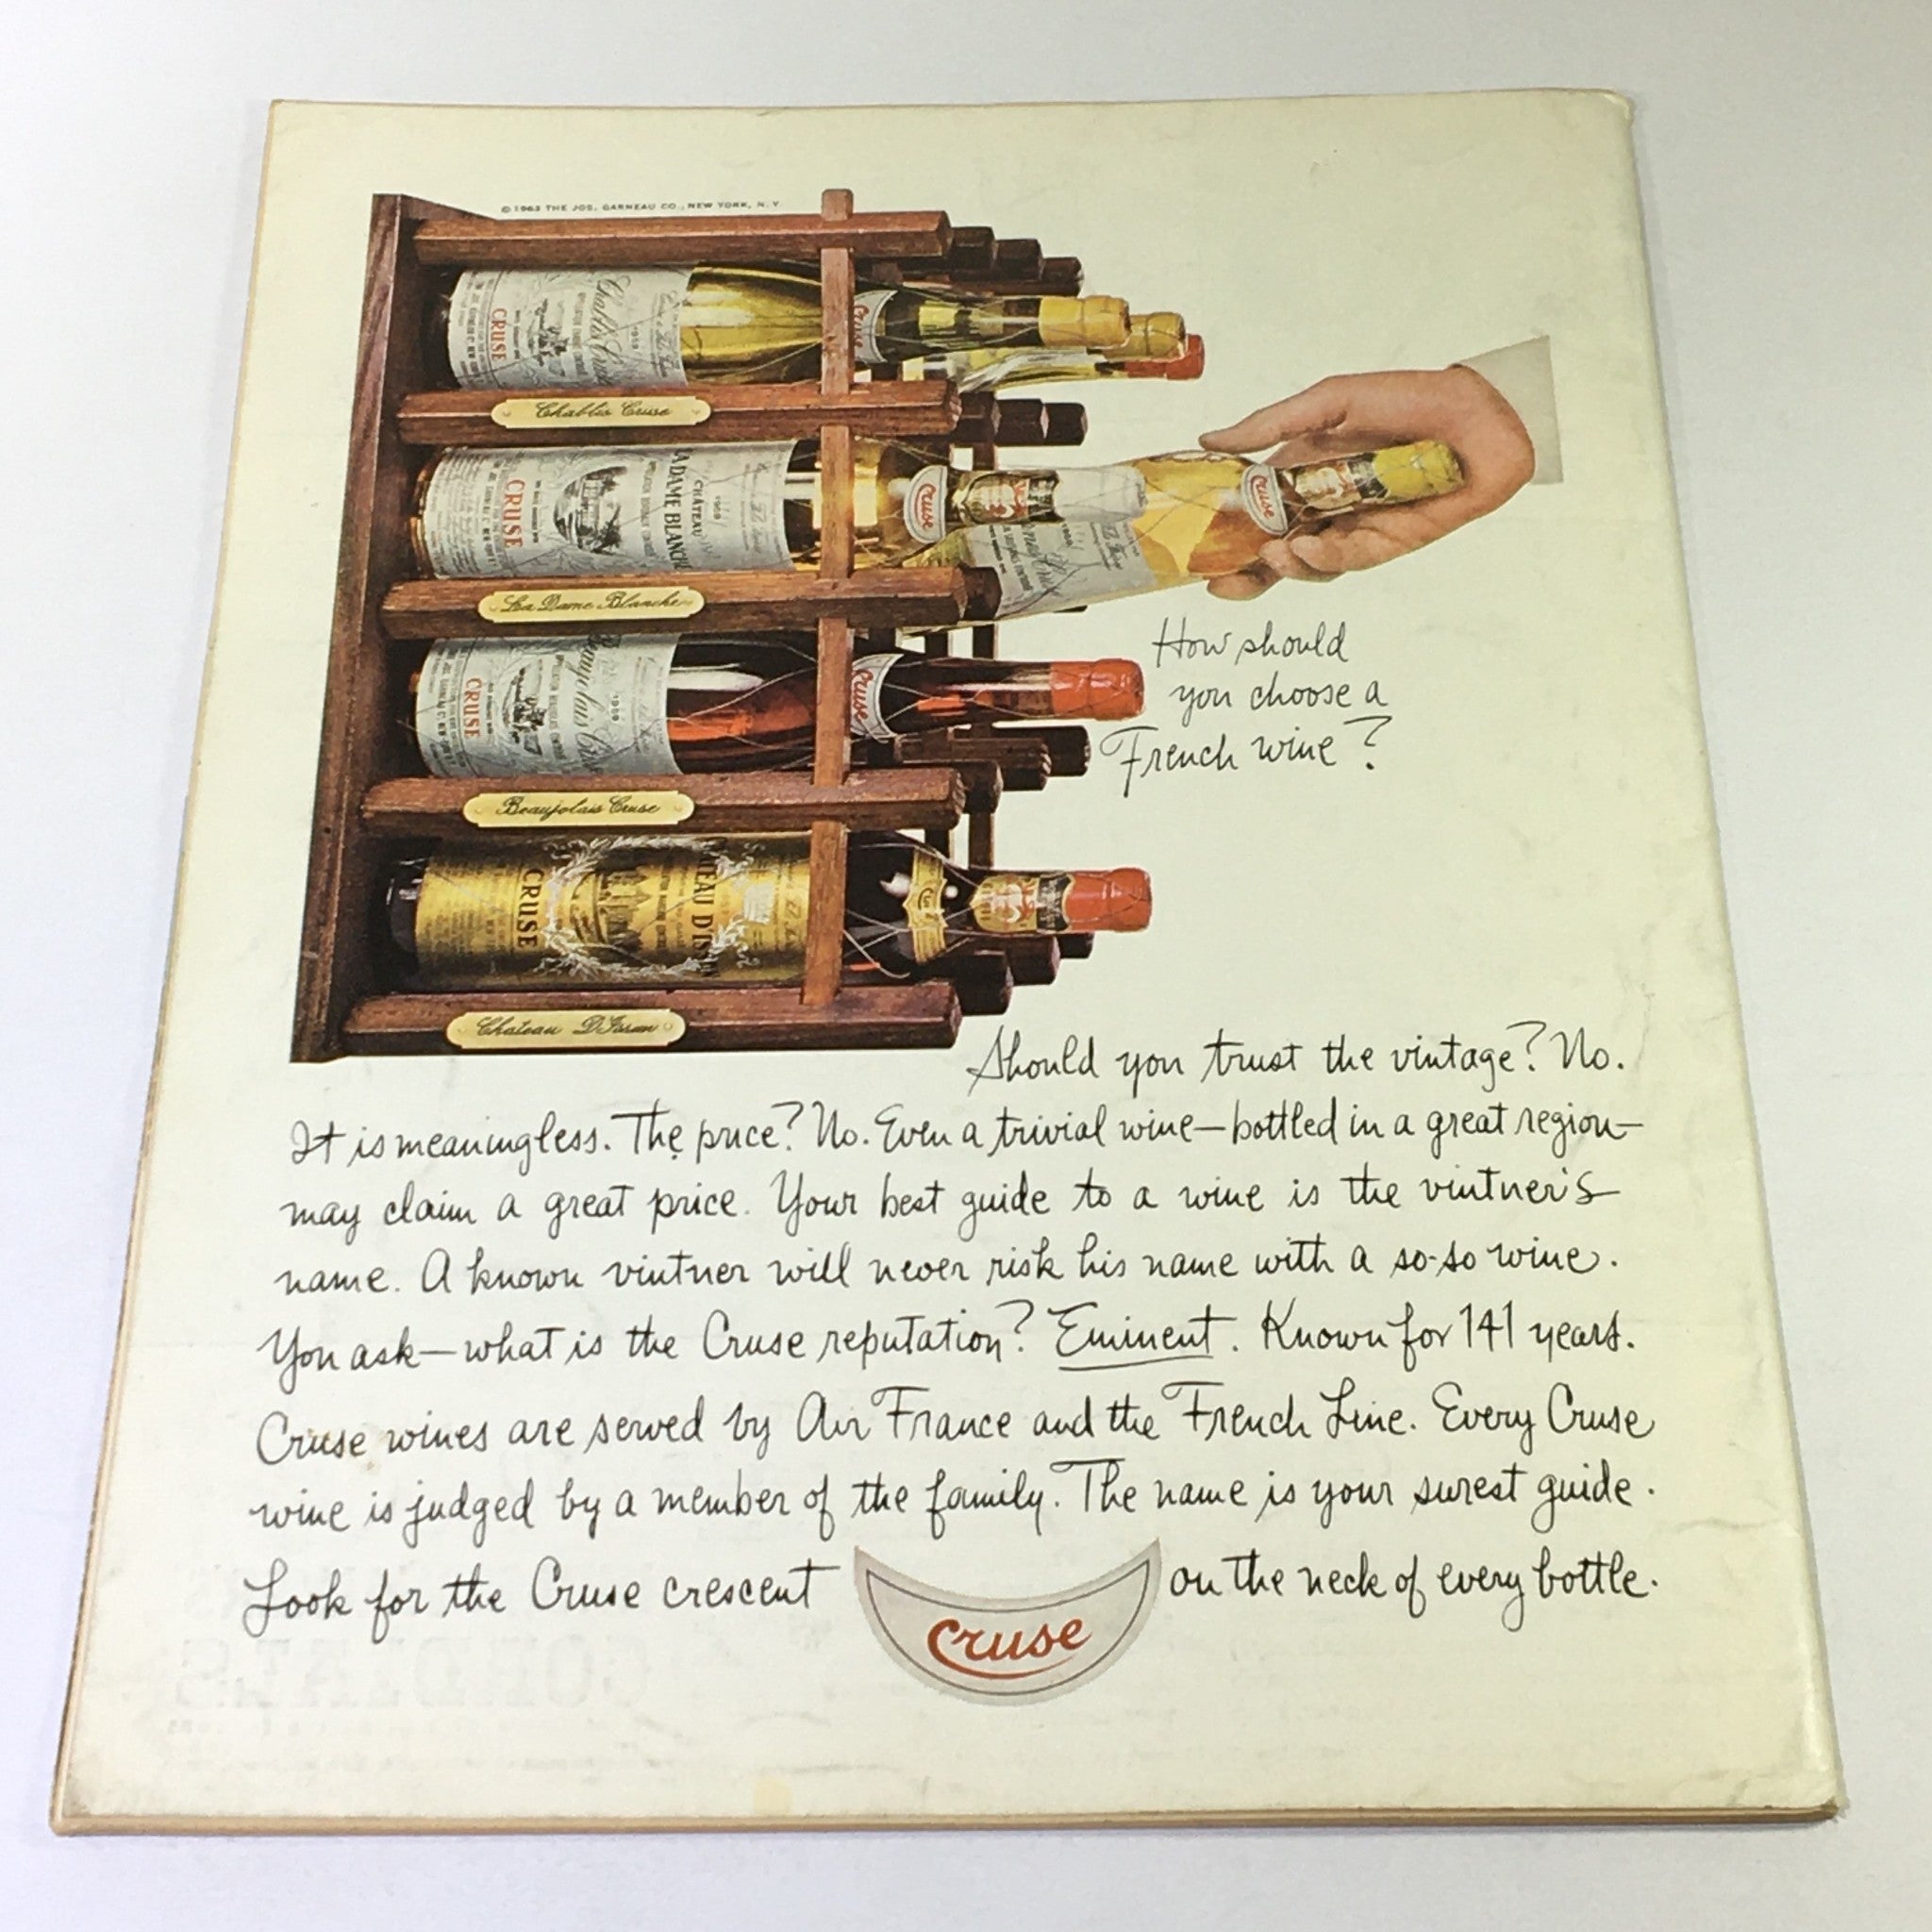 © 1963 THE JOS. GARNEAU CO., NEW YORK, N.Y.
CRUSE
Chablis Cruse
1959
Cruse
Chablis Cruse
CRUSE
CHÂTEAU
LA DAME BLANCHE
1959
Cruse
Cruse
La Dame Blanche
CRUSE
Beaujolais Cruse
1959
Cruse
Beaujolais Cruse
CRUSE
CHATEAU D'ISSAN
Chateau D'Issan
How should
you choose a
French wine?
Should you trust the vintage? No.
It is meaningless. The price? No. Even a trivial wine—bottled in a great region—
may claim a great price. Your best guide to a wine is the vintner's
name. A known vintner will never risk his name with a so-so wine.
You ask—what is the Cruse reputation? Eminent. Known for 141 years.
Cruse wines are served by Air France and the French Line. Every Cruse
wine is judged by a member of the family. The name is your surest guide.
Look for the Cruse crescent Cruse on the neck of every bottle.